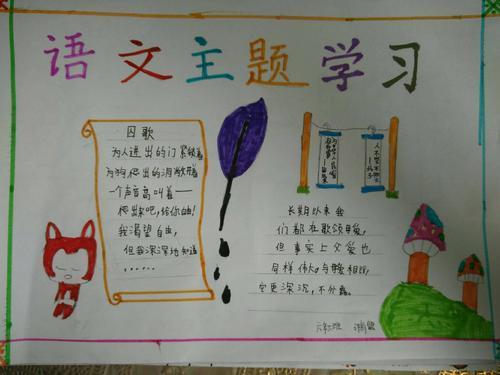 语文主题学习
囚歌
为人进出的门紧锁着
为狗爬出的洞敞开着
一个声音高叫着——
爬出来吧,给你自由!
我渴望自由,
但我深深地知道
……
长期以来我
们都在歌颂母爱,
但事实上父爱也
同样伟大。与母爱相比,
它更深沉,不外露。